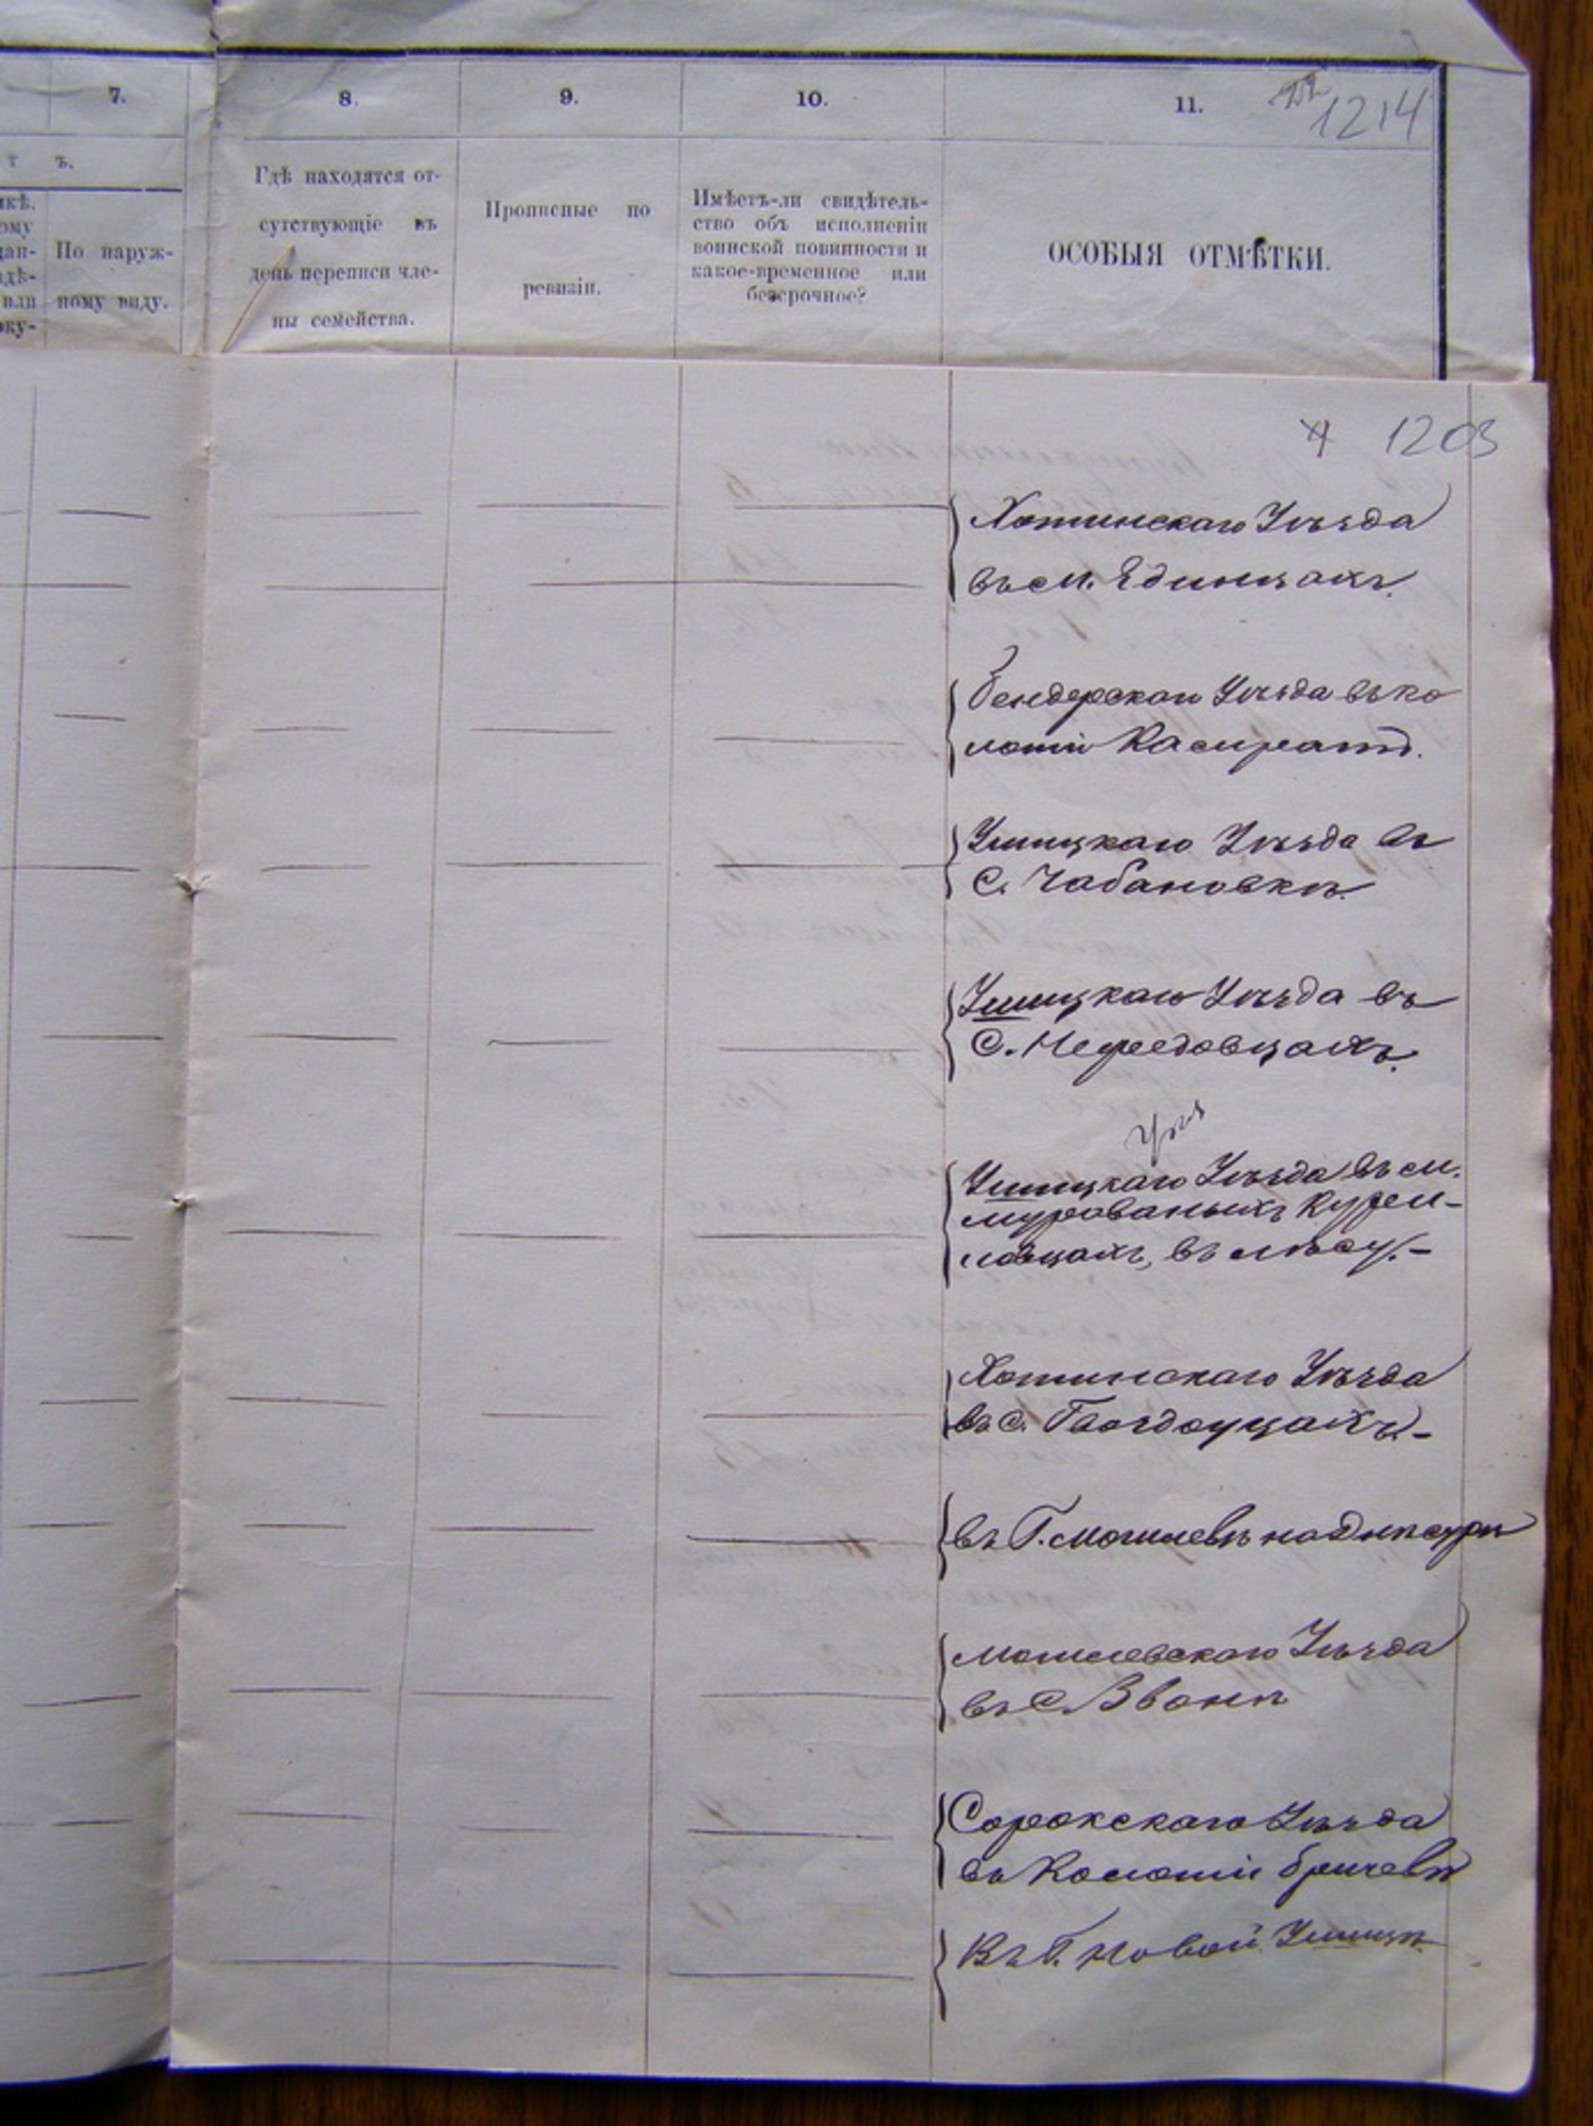 7.
8.
9.
10.
11.
1214
т ъ.
По наруж-
ному виду.
Гдѣ находятся от-
сутствующіе въ
день переписи чле-
ны семейства.
Прописные по
ревизіи.
Имѣетъ-ли свидѣтель-
ство объ исполненіи
воинской повинности и
какое-временное или
безсрочное?
ОСОБЫЯ ОТМѢТКИ.
1203
Хотинскаго Уѣзда
въ м. Единцахъ.
Бендерскаго Уѣзда въ ко
лоніи
Ушицкаго Уѣзда въ
С. Чабановкѣ.
Ушицкаго Уѣзда въ
С.
Ушицкаго Уѣзда въ м.
мурованыхъ Курил-
ловцахъ, въ лѣсу. -
Хотинскаго Уѣзда
въ С. Гвоздоуцахъ. -
въ Г. Могилевѣ на Днѣстрѣ
Могилевскаго Уѣзда
въ С.
Сорокскаго Уѣзда
въ Колоніи Бричевѣ
Въ Г. Новой Ушицѣ.